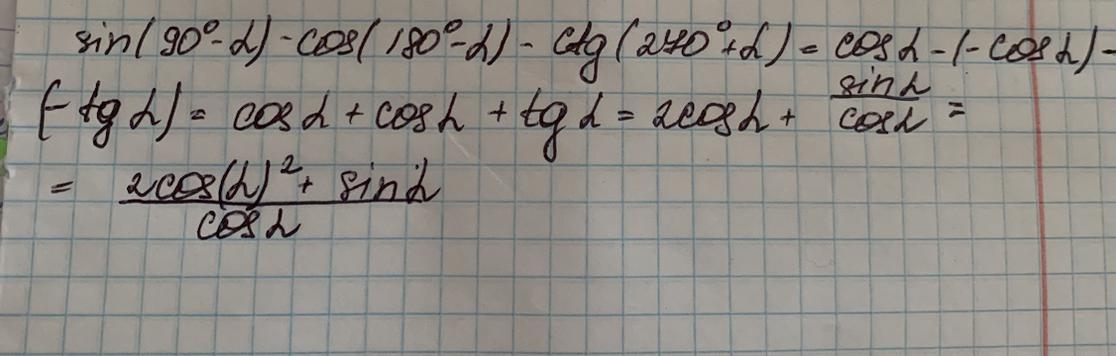 sin(90°-α)-cos(180°-α)-ctg(270°+α)=cosα-(-cosα)-
(-tgα)=cosα+cosα+tgα=2cosα+ sinα/cosα =
= (2cos(α)²+ sinα)/cosα